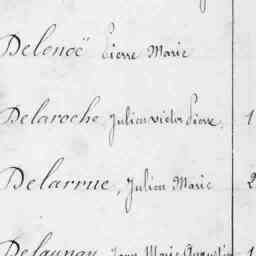 Delenoë Pierre Marie
Delaroche, Julien victor Pierre, 1
Delarrue, Julien Marie 2
Delaunay, Jean Marie Augustin 1